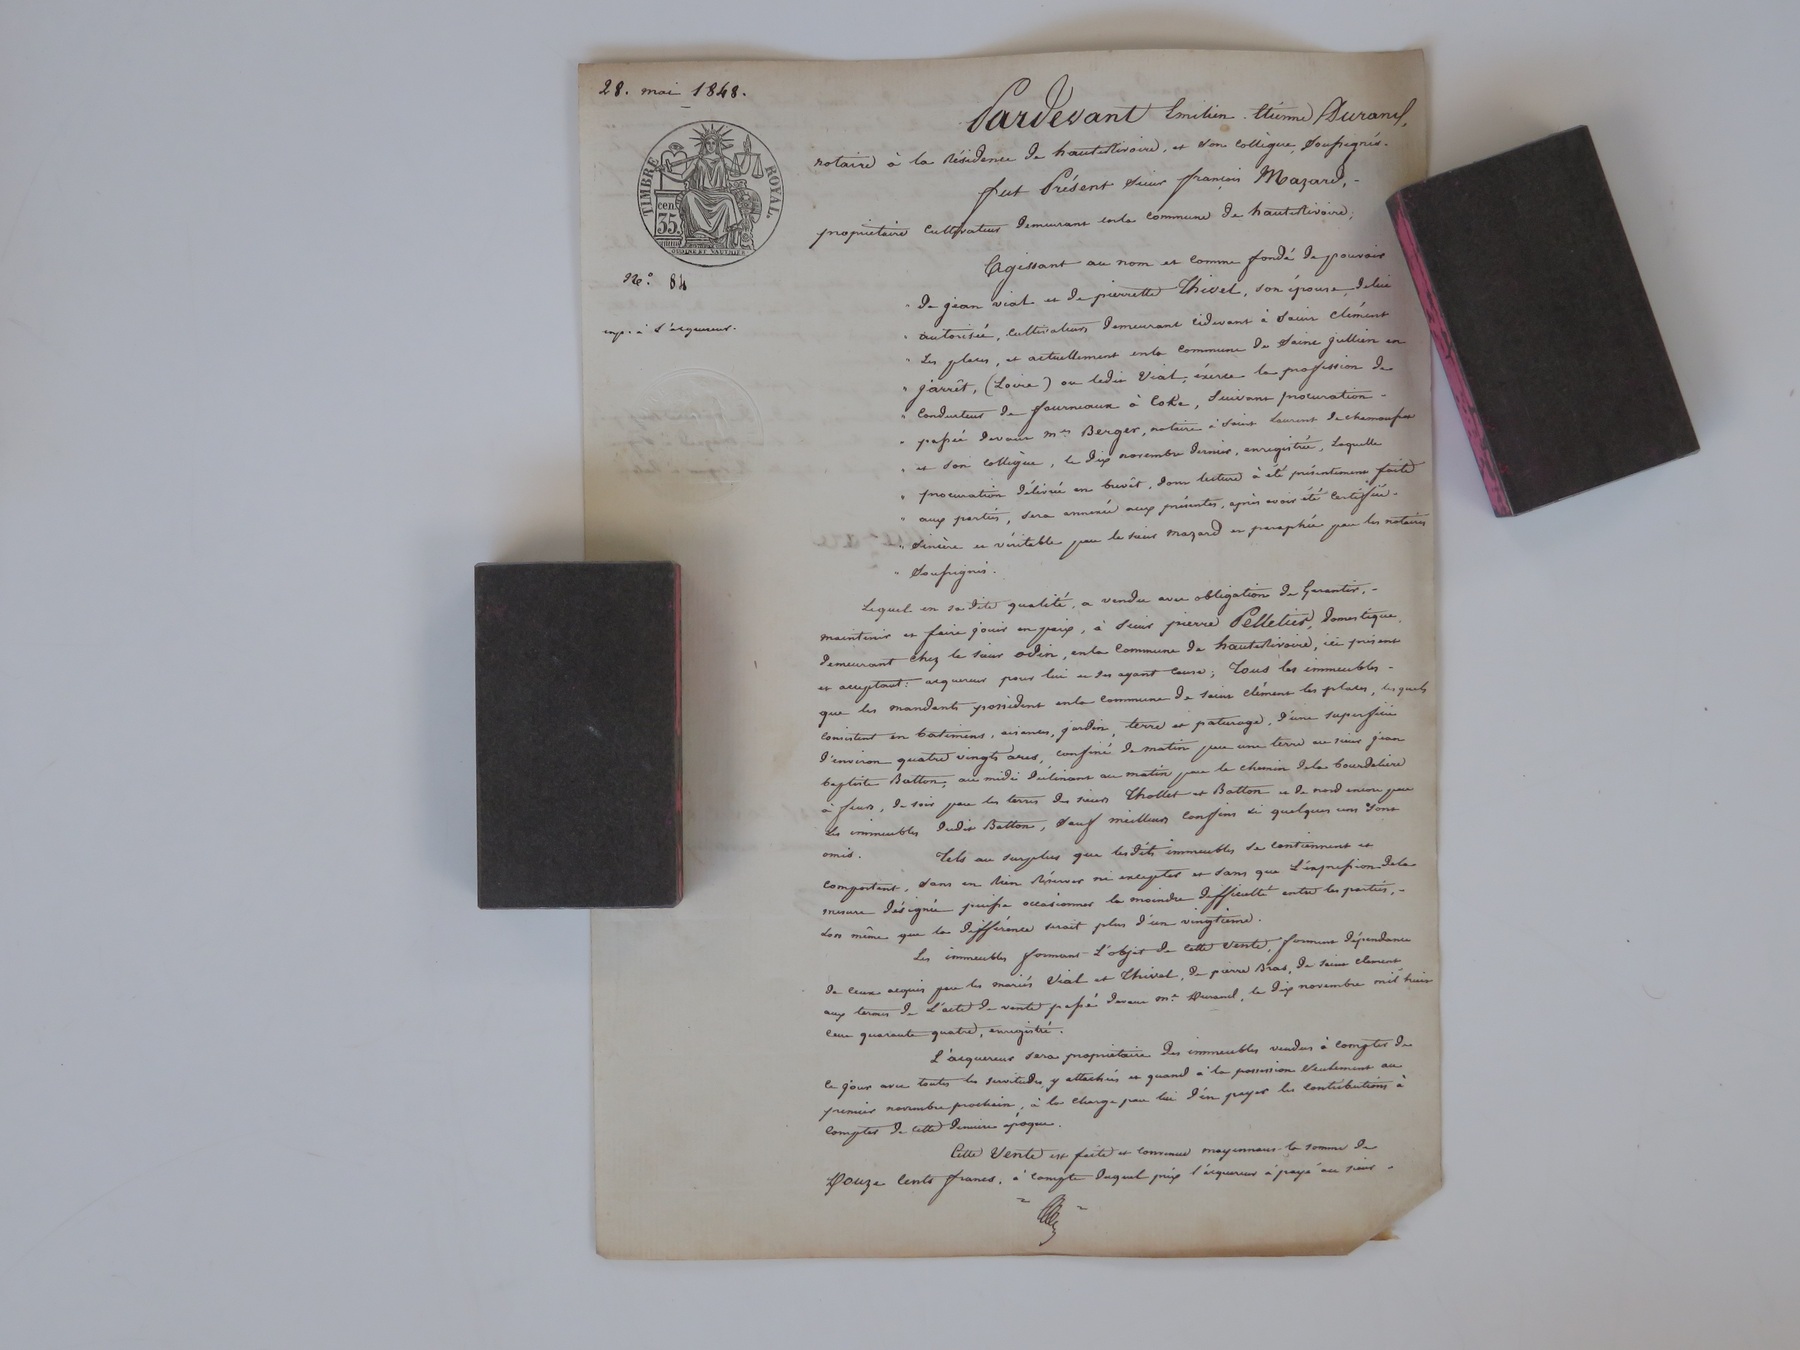 28. mai 1848.
TIMBRE ROYAL.
cen.
35.
N.º 84
exp. à l'acquereur.
Pardevant Emilien Etienne Durand,
notaire à la Résidence de hauteRivoire, et son collègue, Soussignés.
fut Présent Sieur françois Mazard, -
propriétaire Cultivateur demeurant enla commune de hauteRivoire;
Agissant au nom et comme fondé de pouvoir
" de jean vial et de pierrette Thivel, son épouse, delui
" autorisée, cultivateurs demeurant cidevant à Saint Clément
" Les places, et actuellement enla commune de Saint jullien en
" jarrêt, (Loire) ou ledit Vial, éxerce la profession de
" Conducteur de fourneaux à CoKe, Suivant procuration -
" passée devant me Berger, notaire à Saint Laurent de chamousset
" et Son collègue, le dix novembre dernier, enregistrée, Laquelle
" procuration délivrée en brevêt, dont lecture à été présentement faite
" aux parties, Sera annexée aux présentes, après avoir été Certifiée -
" Sincère et véritable par le sieur Mazard et paraphée par les notaires
" Soussignés.
Lequel en sa dite qualité, a vendu avec obligation de Garantir, -
maintenir et faire jouir en paix, à Sieur pierre Pelletier, domestique,
demeurant chez le sieur odin, enla Commune de hauteRivoire, ici présent
et acceptant: acquereur pour lui et ses ayant cause; Tous les immeubles -
que les mandants possèdent enla commune de saint clément les places, lesquels
Consistent en batimens, aisances, jardin, terre et paturage, d'une superficie
d'environ quatre vingts ares, confiné de matin par une terre au sieur jean
baptiste Batton, au midi déclinant au matin par le chemin dela bourdelière
à feurs, de soir par les terres des sieurs Thollet et Batton et de nord encore par
Les immeubles dudit Batton, Sauf meilleurs Confins si quelques uns Sont
omis. Tels au surplus que lesdits immeubles se contiennent et
Comportent, Sans en Rien Réserver ni excepter et sans que L'expression dela
mesure désignée puisse occasionner la moindre difficulté entre les parties, -
Lors même que la différence serait plus d'un vingtième.
Les immeubles formant L'objet de cette vente, forment dépendance
de Ceux acquis par les mariés Vial et Thivel, de pierre Bras, de saint Clément
aux termes de L'acte de vente passé devant me Durand, le dix novembre mil huit
Cent quarante quatre, enregistré.
L'acquereur sera propriétaire des immeubles vendus à compter de
Ce jour avec toutes les servitudes y attachées et quand à la possession Seulement au
premier novembre prochain, à la charge par lui d'en payer les Contributions à
Compter de cette dernière époque.
Cette Vente est faite et Convenue moyennant la somme de
Douze Cents francs, à compte duquel prix l'acquereur a payé au sieur -